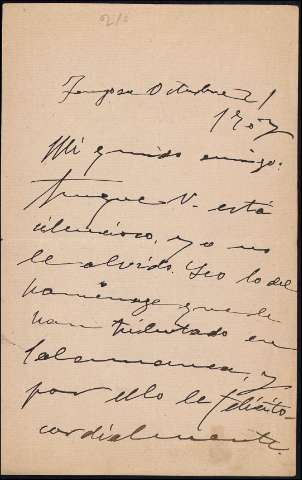 Octubre 21
190
Mi querido amigo:
Aunque V. está
silencioso, yo no
le olvido. Leo lo del
homenage que le
han tributado en
Salamanca, y
por ello le felicito
cordialmente.